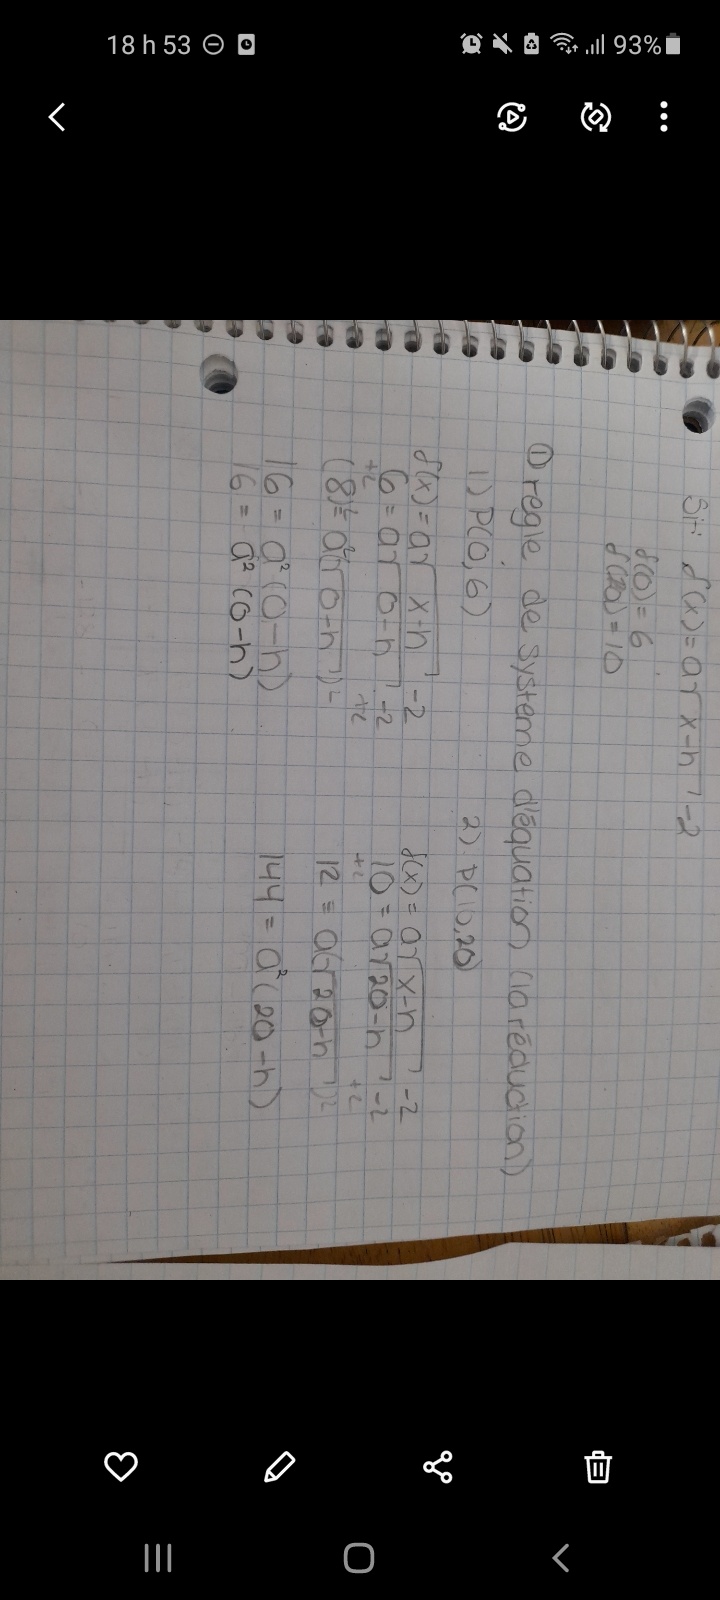 18 h 53
93%
Sit: f(x) = a√x-h -2
f(0) = 6
f(20) = 10
① regle de systeme d'équation (la réduction)
1) P(0,6)
f(x) = a√x-h -2
6 = a√0-h -2
+2 +2
(8)² = a²(√0-h)²
16 = a²(0-h)
16 = a²(0-h)
2) P(10,20)
f(x) = a√x-h -2
10 = a√20-h -2
+2 +2
12 = a(√20-h)²
144 = a²(20-h)